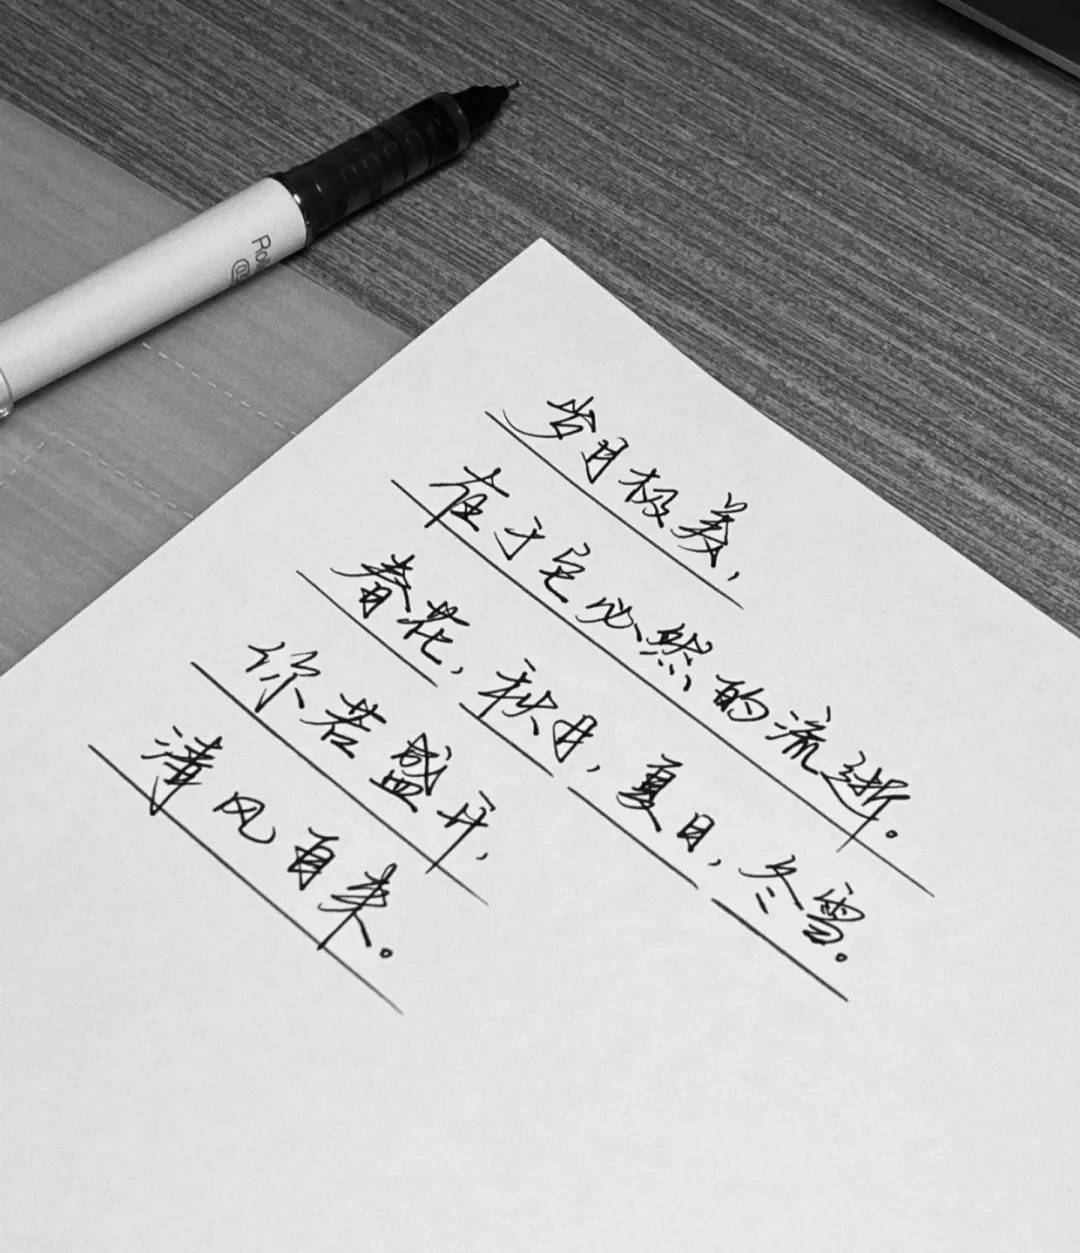 岁月极美，
在于它必然的流逝。
春花，秋月，夏日，冬雪。
你若盛开，
清风自来。